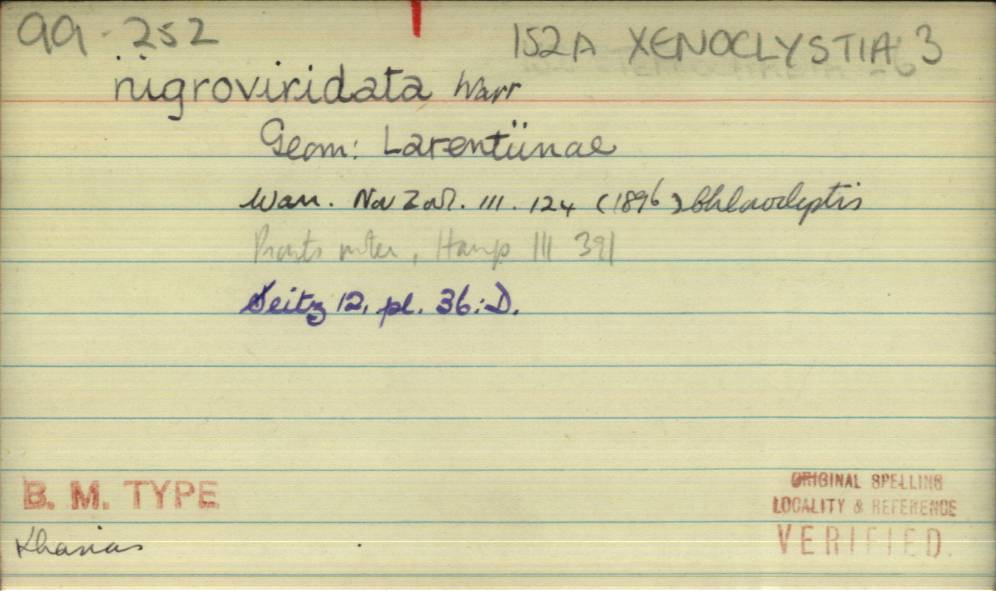 99-252
152A XENOCLYSTIA 3
nigroviridata Warr
Geom: Larentiinae
Warr. Nov Zool. III. 124 (1896) Chloroclystis
Prouts mter, Hamp III 391
Seitz 12, pl. 36:D.
B. M. TYPE
ORIGINAL SPELLING
LOCALITY & REFERENCE
VERIFIED.
Khasias